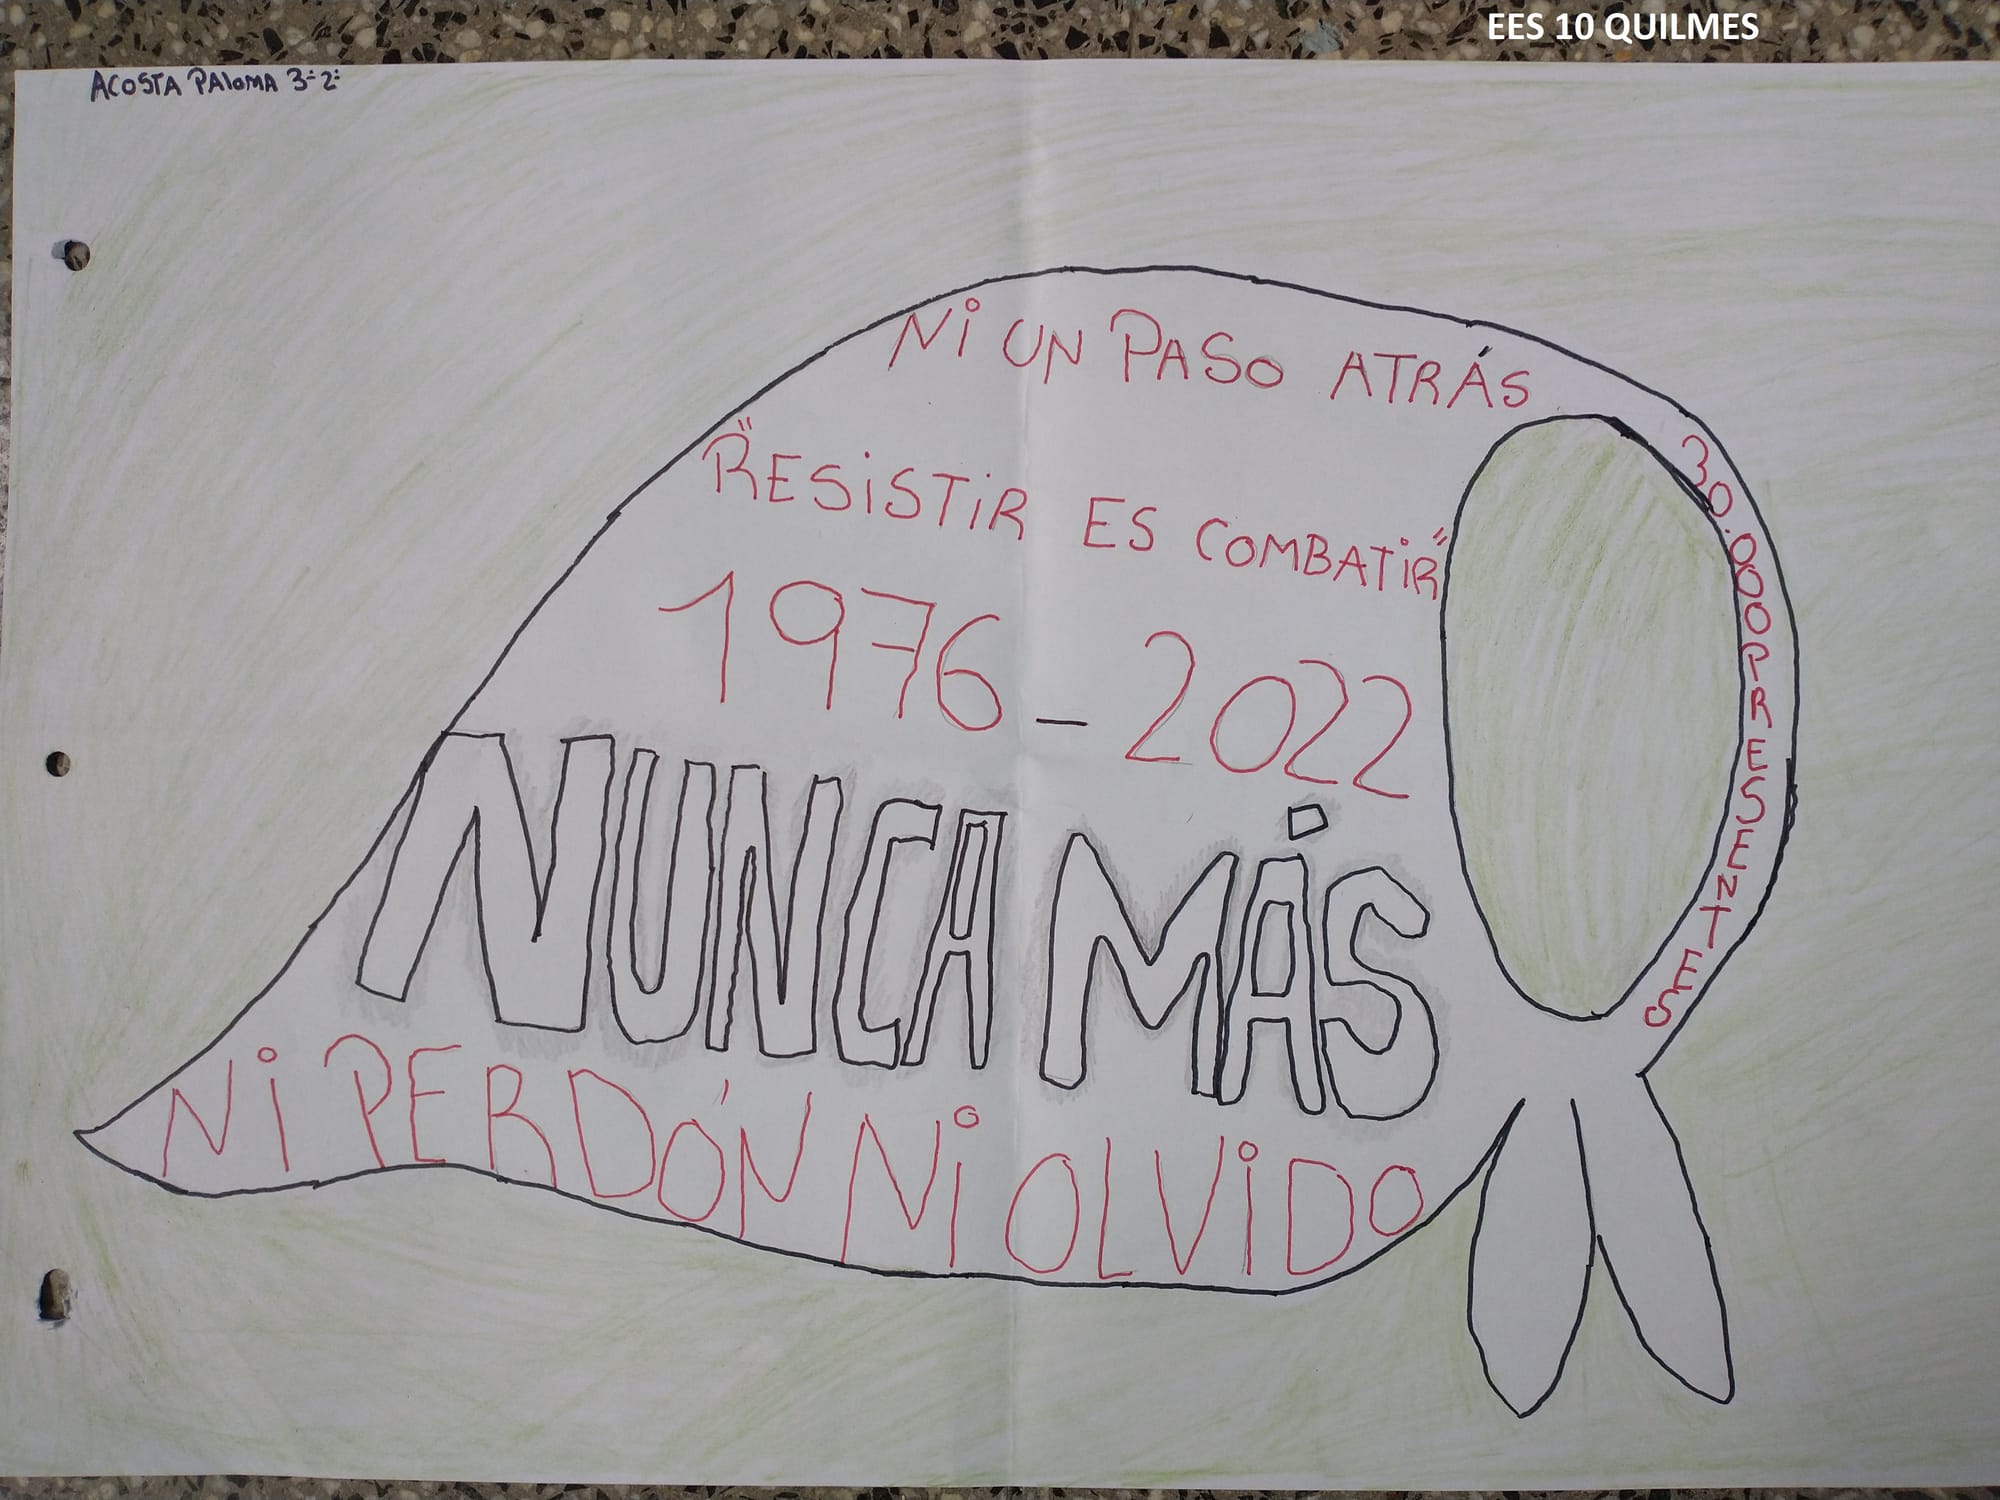 EES 10 QUILMES
ACOSTA PALOMA 3° 2°
NI UN PASO ATRÁS
"RESISTIR ES COMBATIR"
1976 - 2022
30.000 PRESENTES
NUNCA MÁS
NI PERDÓN NI OLVIDO